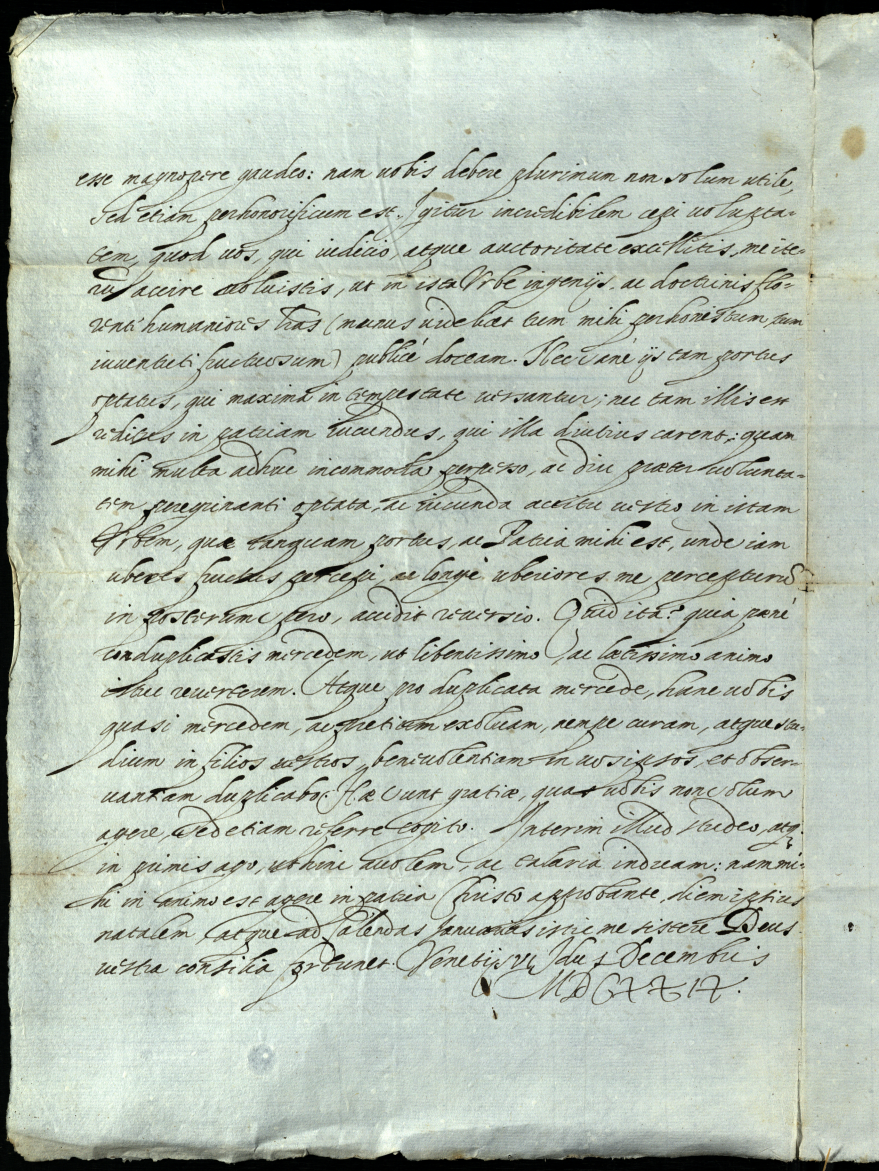 esse magnopere gaudeo: nam uobis debere plurimum non solum utile,
sed etiam perhonorificum est. Igitur incredibilem cepi uolupta-
tem, quod uos, qui iudicio, atque auctoritate excellitis, me ite-
rũ accire uoluistis, ut in ista Vrbe ingenijs, ac doctrinis flo-
renti humaniores l͠ras (munus uidelicet tum mihi perhonestum, tum
iuuentuti fructuosum) publicè doceam. Nec sanè ijs tam portus
optatus, qui maxima in tempestate uersantur; nec tam illis est
reditus in patriam iucundus, qui illa diutius carent; quam
mihi multa adhuc incommoda perpesso, ac diu praeter uolunta-
tem peregrinanti optata, ac iucunda accitu uestro in istam
Vrbem, quae tanquam portus, ac Patria mihi est, unde iam
uberes fructus percepi, ac longè uberiores me percepturũ
in posterum spero, accidit reuersio. Quid ita? quia paenè
conduplicastis mercedem, ut libentissimo, ac laetissimo animo
istuc reuerterem. Atque pro duplicata mercede, hanc uobis
quasi mercedem, ac pretium exoluam, nempe curam, atque stu-
dium in filios uestros, beneuolentiam in uos ipsos, et obser-
uantiam duplicabo. Hae sunt gratiae, quas uobis non solum
agere, sed etiam referre cogito. Interim illud studeo, atq.
in primis ago, ut hinc auolem, ac talaria induam: nam mi-
hi in animo est agere in patria Christo approbante, diem ipsius
natalem, atque ad Calendas Januarias istic me sistere. Deus
uestra consilia fortunet. Venetijs VI Idus Decembris
MDCXXIX.